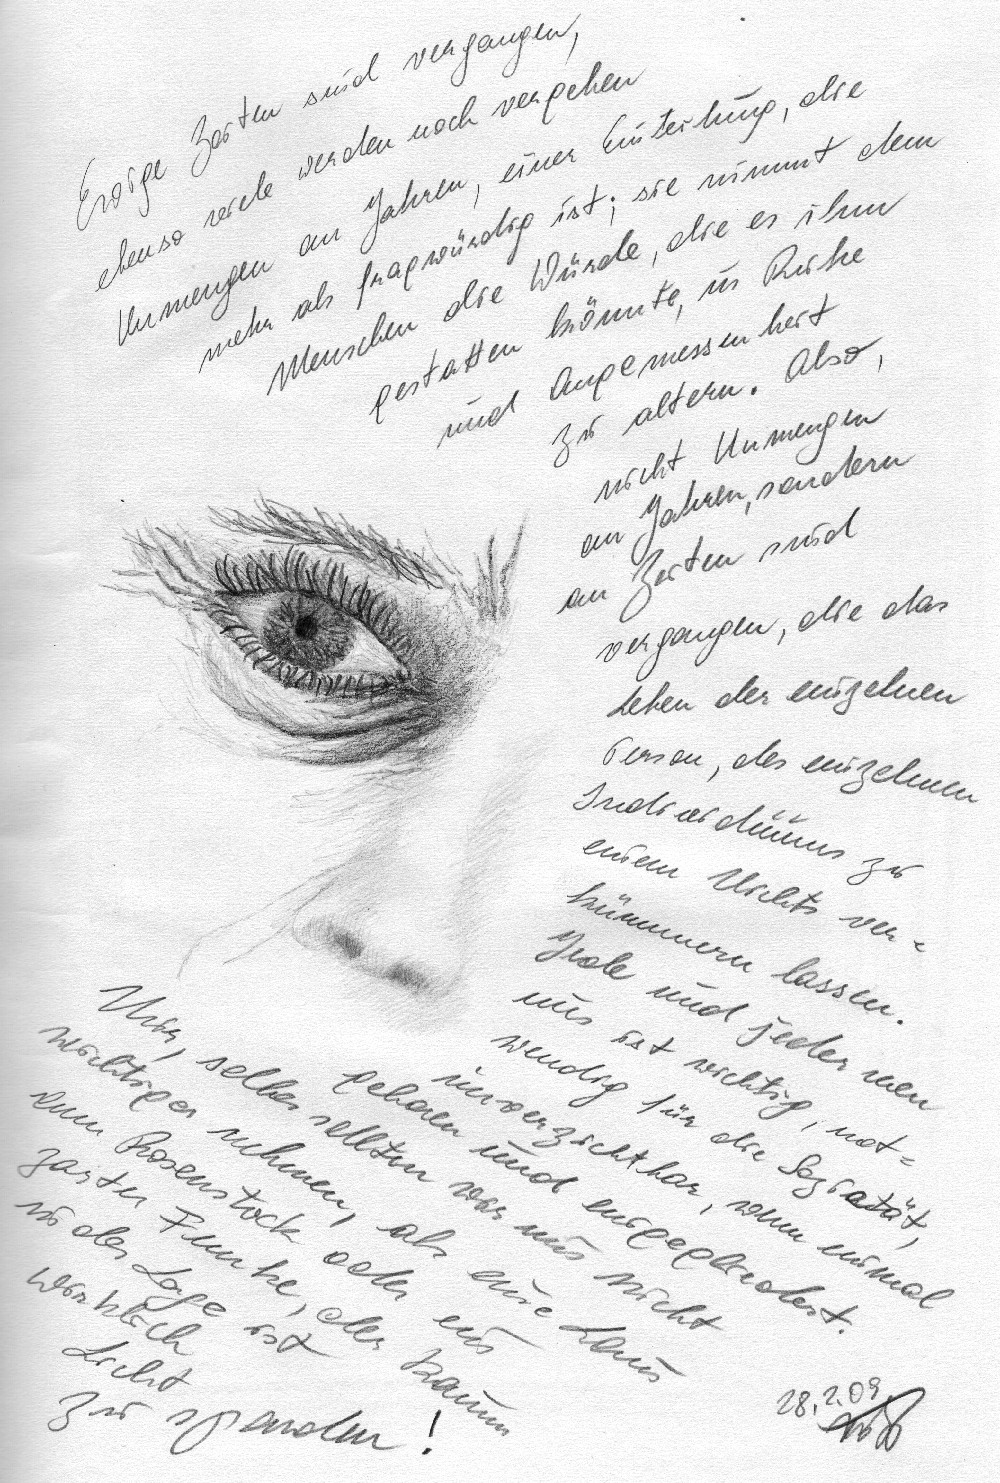 Ewige Zeiten sind vergangen,
ebenso viele werden noch vergehen
Unmengen an Jahren, einer Einteilung, die
mehr als fragwürdig ist; sie nimmt dem
Menschen die Würde, die es ihm
gestatten könnte, in Ruhe
und Angemessenheit
zu altern. Also,
nicht Unmengen
an Jahren, sondern
an Zeiten sind
vergangen, die das
Leben der einzelnen
Person, des einzelnen
Individuums zu
einem Nichts ver-
kümmern lassen.
Jede und jeder von
uns ist wichtig, not-
wendig für die Sozietät,
unverzichtbar, wenn einmal
geboren und eingegliedert.
Wir, selber sollten wir uns nicht
wichtiger nehmen, als eine Laus
am Rosenstock oder ein
zarter Funke, der kaum
in der Lage ist
wirklich
Licht
zu spenden!
28.2.09